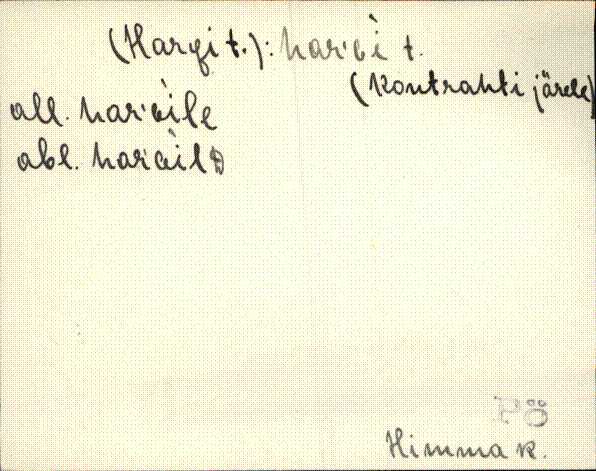 (Hargi t.): har'g̀i t.
(Kontrahti järele)
all. har'g̀ile
abl. har'g̀ilD
PÖ
Himma k.